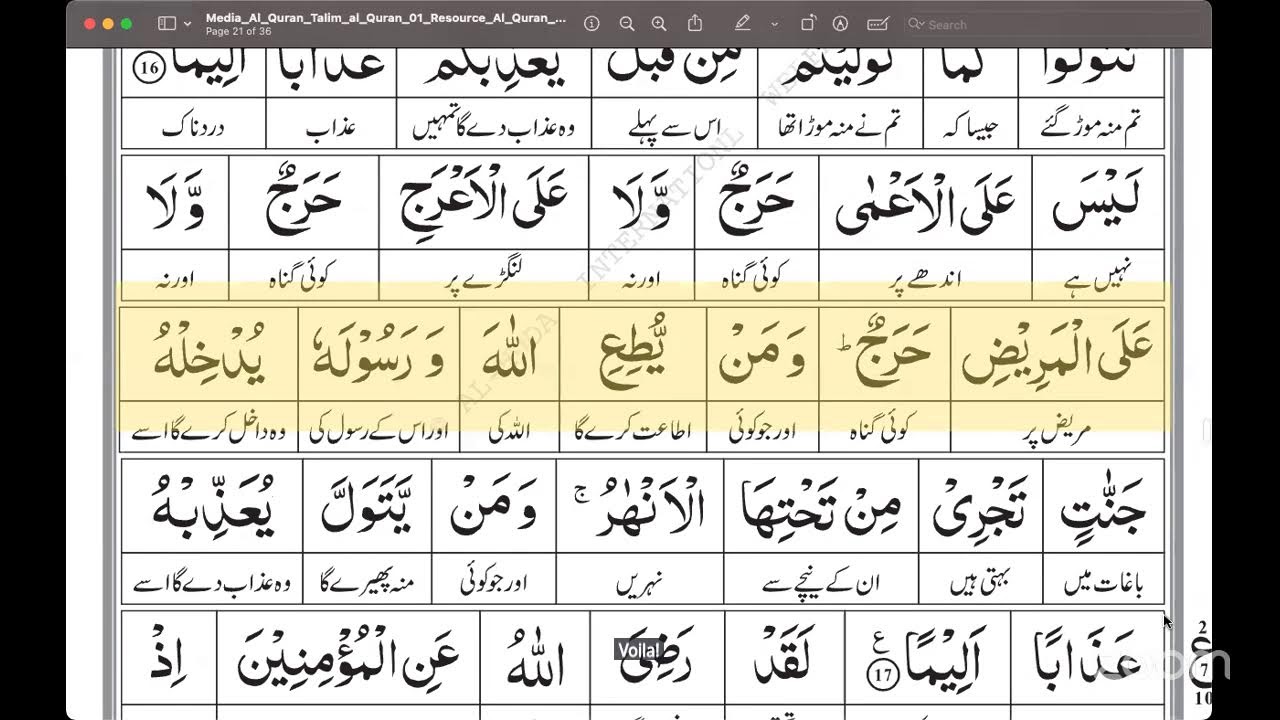 Media_Al_Quran_Talim_al_Quran_01_Resource_Al_Quran_...
Page 21 of 36
Search
تَتَوَلَّوْا كَمَا تَوَلَّيْتُمْ مِّنْ قَبْلُ يُعَذِّبْكُمْ عَذَابًا اَلِيْمًا 16
تم منہ موڑ گئے جیسا کہ تم نے منہ موڑا تھا اس سے پہلے وہ عذاب دے گا تمہیں عذاب دردناک
لَيْسَ عَلَى الْاَعْمٰى حَرَجٌ وَّلَا عَلَى الْاَعْرَجِ حَرَجٌ وَّلَا
نہیں ہے اندھے پر کوئی گناہ اور نہ لنگڑے پر کوئی گناہ اور نہ
عَلَى الْمَرِيْضِ حَرَجٌ ؕ وَمَنْ يُّطِعِ اللّٰهَ وَرَسُوْلَهٗ يُدْخِلْهُ
مریض پر کوئی گناہ اور جو کوئی اطاعت کرے گا اللہ کی اور اس کے رسول کی وہ داخل کرے گا اسے
جَنّٰتٍ تَجْرِيْ مِنْ تَحْتِهَا الْاَنْهٰرُ ۚ وَمَنْ يَّتَوَلَّ يُعَذِّبْهُ
باغات میں بہتی ہیں ان کے نیچے سے نہریں اور جو کوئی منہ پھیرے گا وہ عذاب دے گا اسے
عَذَابًا اَلِيْمًا ع 17 لَقَدْ رَضِيَ اللّٰهُ عَنِ الْمُؤْمِنِيْنَ اِذْ
2
ع
7
10
Voilal
zoom
INTERNATIONL